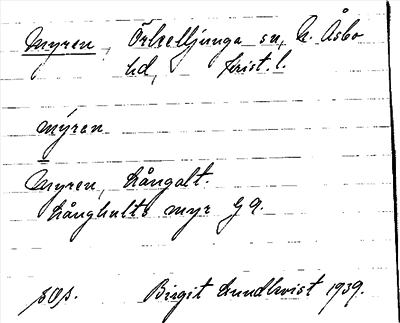 Myren, Örkelljunga sn, N. Åsbo
hd, Krist. l.
mýren
=
Myren, Långalt.
Långhults myr G 9.
Birgit Lundkvist 1939.